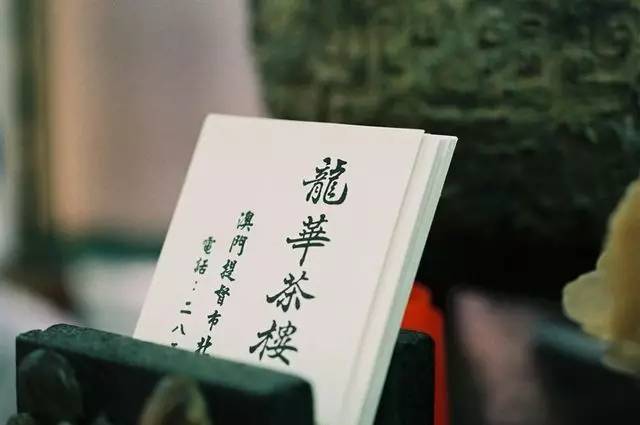 龍華茶樓
澳門提督市北
電話：二八